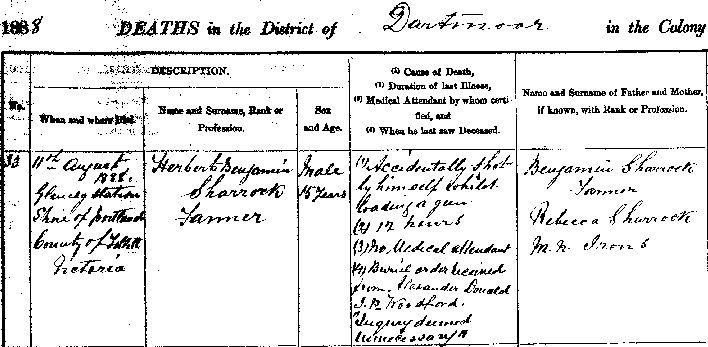 1888 DEATHS in the District of Dartmoor in the Colony
DESCRIPTION.
No.
When and where Died.
Name and Surname, Rank or
Profession.
Sex
and Age.
(1) Cause of Death,
(2) Duration of last Illness,
(3) Medical Attendant by whom certi
fied, and
(4) When he last saw Deceased.
Name and Surname of Father and Mother,
if known, with Rank or Profession.
33
11th August
1888.
Glenelg Station
Shire of Portland
County of Follett
Victoria
Herbert Benjamin
Sharrock
Tanner
Male
15 Years
(1) Accidentally shot
by himself whilst
loading a gun
(2) 12 hours
(3) No Medical attendant
(4) Burial order received
from Alexander Donald
J.P. Woodford.
"Inquiry deemed
unnecessary"
Benjamin Sharrock
Tanner
Rebecca Sharrock
M.N. Irons